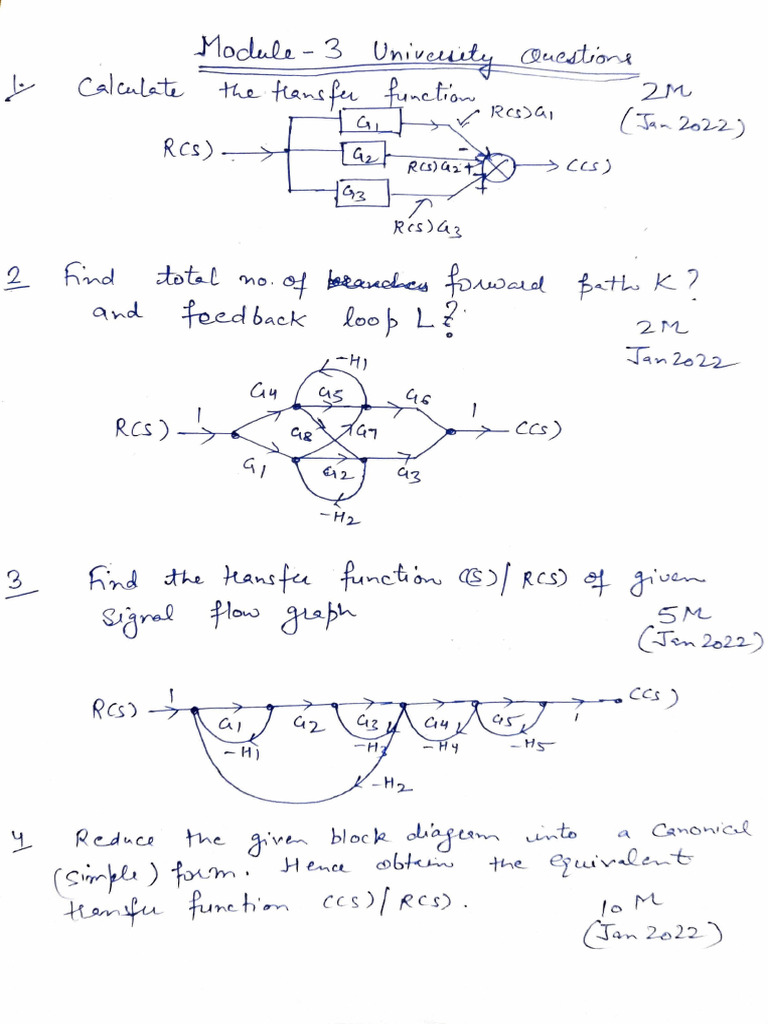 Module - 3 University Questions
1. Calculate the transfer function 2M
(Jan 2022)
R(s) G1 R(s)G1
G2 R(s)G2 + C(s)
G3 +
R(s)G3
2 Find total no. of branches forward path K?
and feedback loop L?
2M
Jan 2022
-H1
G4 G5 G6
R(s) 1 G8 G7 1 C(s)
G1 G2 G3
-H2
3 Find the transfer function C(s)/R(s) of given
signal flow graph
5M
(Jan 2022)
R(s) 1 G1 G2 G3 G4 G5 1 C(s)
-H1 -H3 -H4 -H5
-H2
4 Reduce the given block diagram into a Canonical
(simple) form. Hence obtain the equivalent
transfer function C(s)/R(s).
10 M
(Jan 2022)